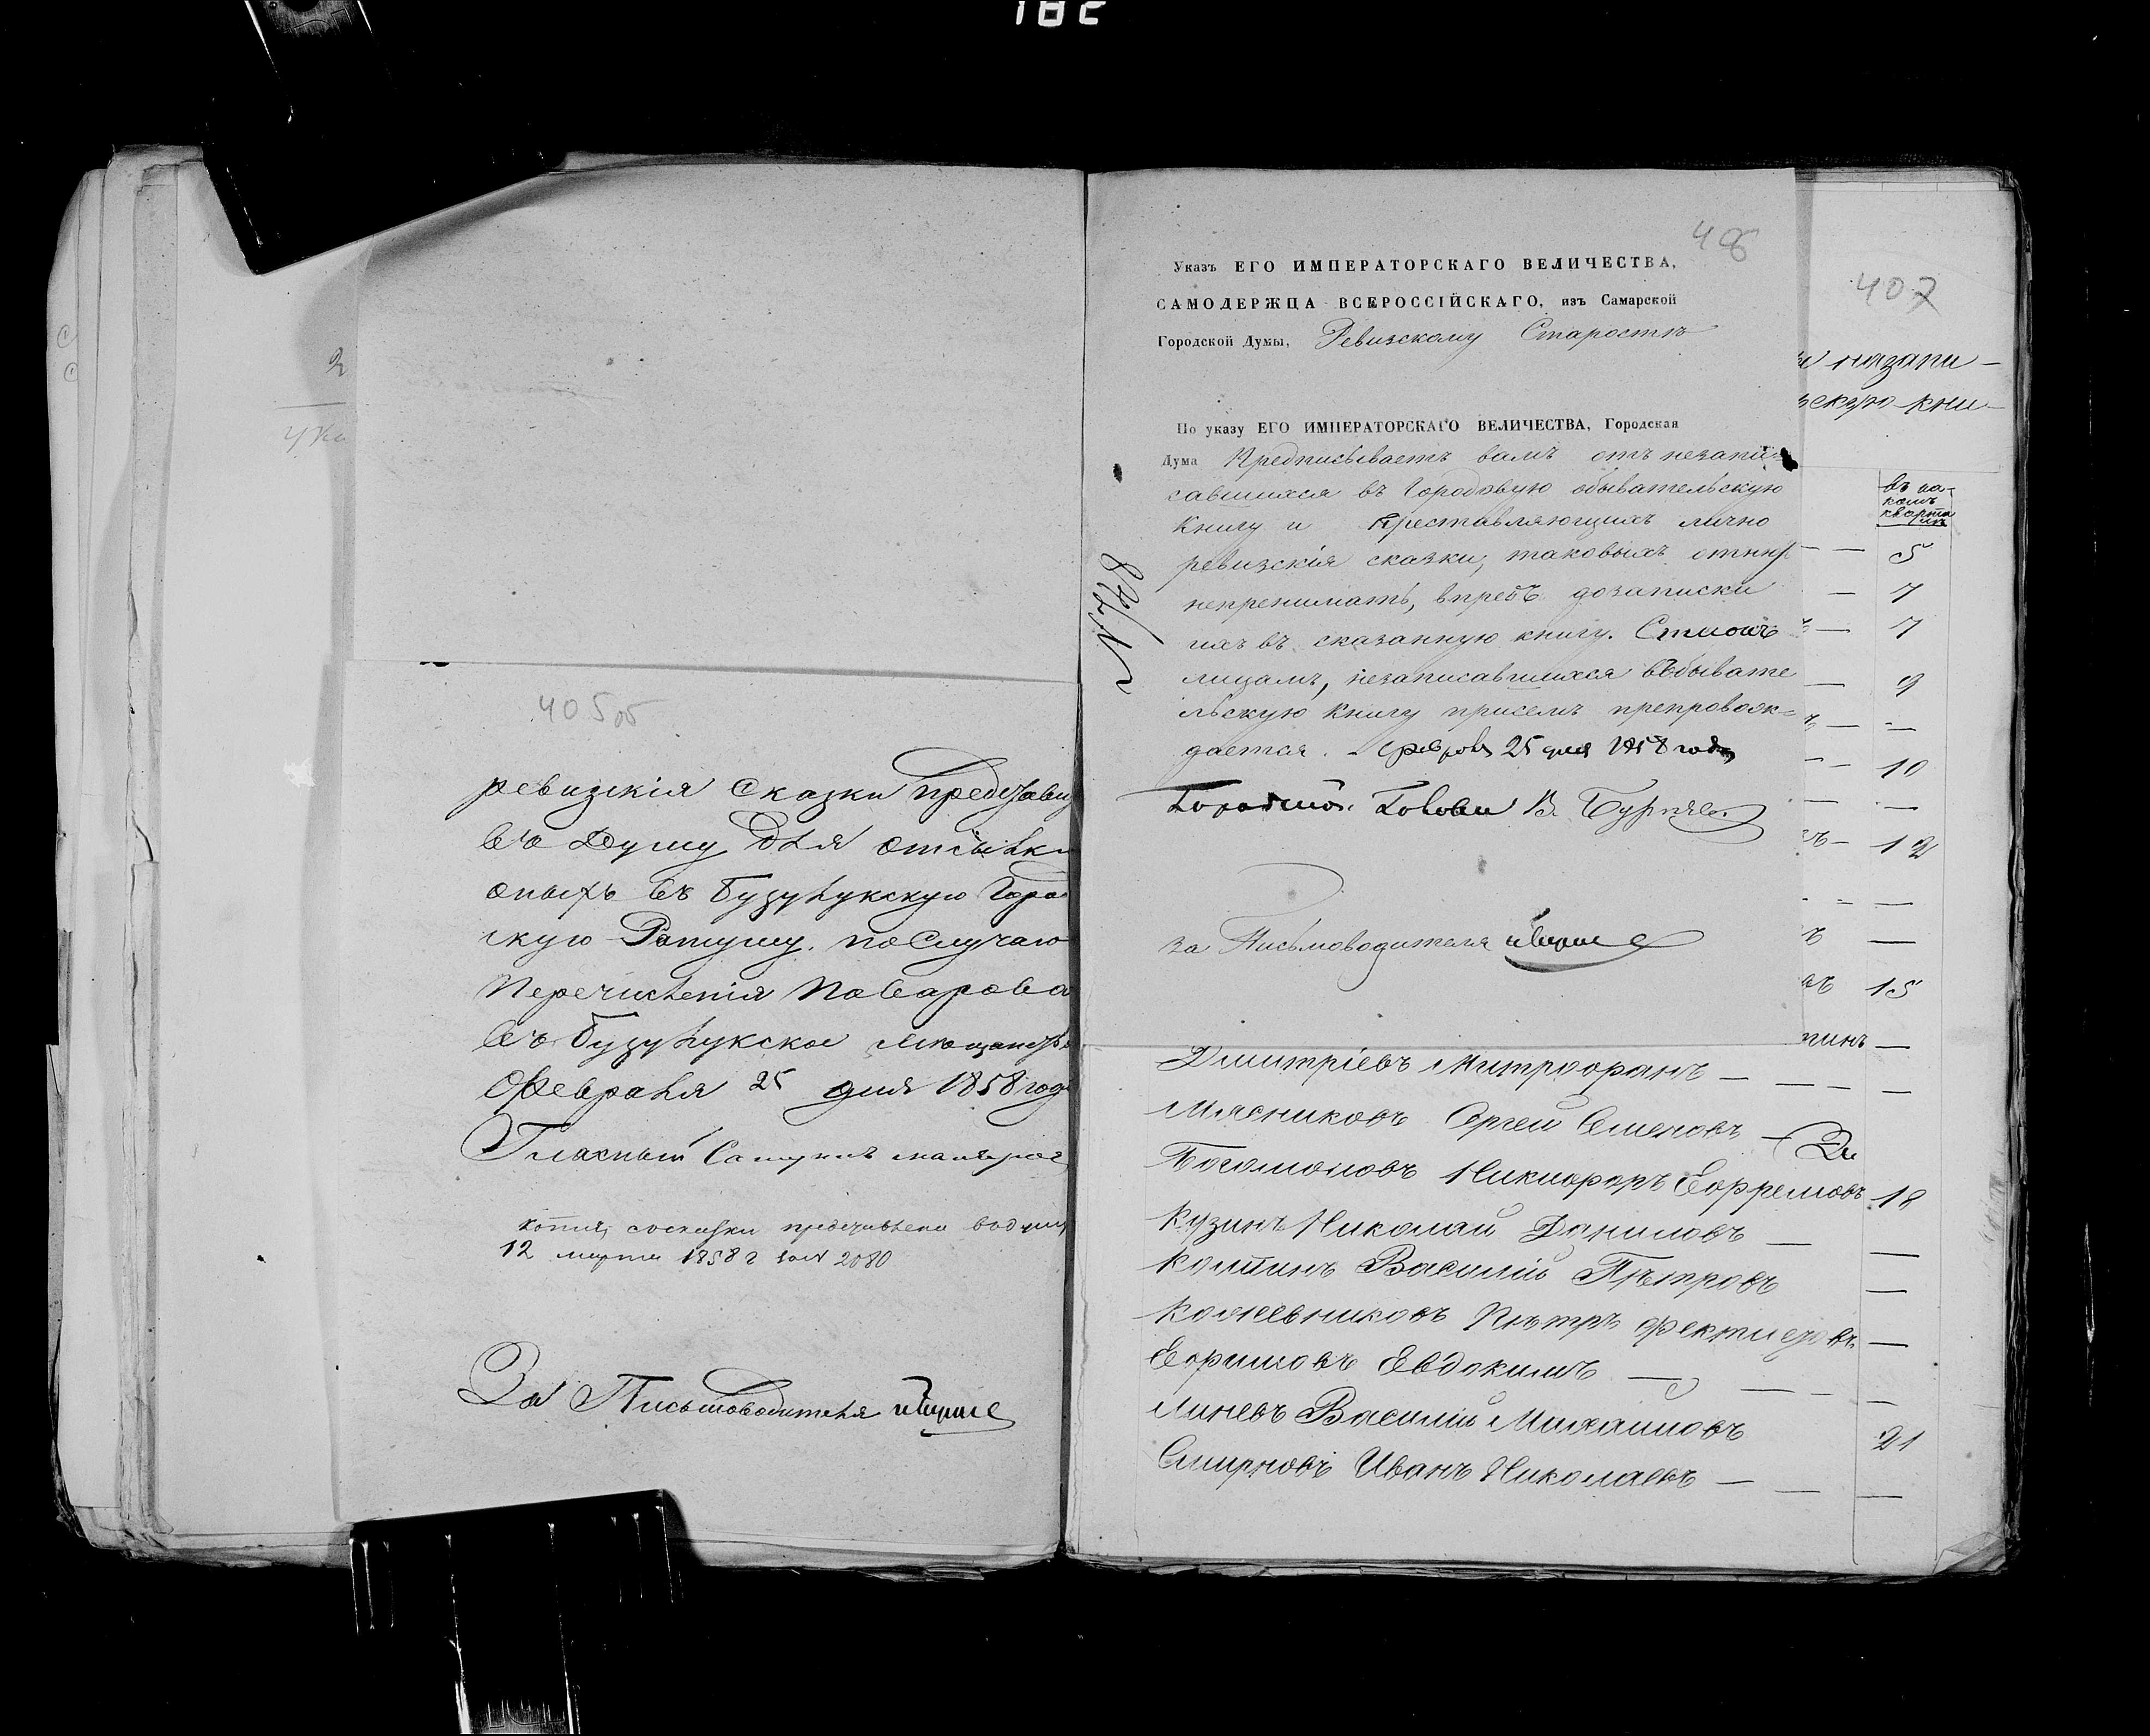 182
405об
ревизскія Сказки представи
въ Думу для отсылки
оныхъ въ Бузулукскую Город
скую Ратушу. по случаю
Перечисленія Поварова
въ Бузулукское мещанств
Февраля 25 дня 1858 года
Гласный
копия, со сказки представлена в думу
12 марта 1858 г за № 2080
За Письмоводителя
406
Указъ ЕГО ИМПЕРАТОРСКАГО ВЕЛИЧЕСТВА,
САМОДЕРЖЦА ВСЕРОССІЙСКАГО, изъ Самарской
Городской Думы, Ревизскому Старостѣ
По указу ЕГО ИМПЕРАТОРСКАГО ВЕЛИЧЕСТВА, Городская
Дума Предписываетъ вамъ отъ незапи-
савшихся въ Городовую обывательскую
Книгу и Преставляющихъ лично
ревизскія сказки, таковыхъ отнюдь
непренимать, впредь дозаписки
ихъ въ сказанную книгу. Списокъ
лицамъ, незаписавшихся въ обывате
льскую Книгу присемъ препровож-
дается. Февраля 25 дня 1858 года
Городской Голова В. Буреевъ
за Письмоводителя
№ 728
407
и мѣщани-
скую кни-
въ ка-
комъ
квартa
лѣ
5
7
7
9
10
12
15
Дмитріевъ Митрофанъ
Мясниковъ Сергей Семеновъ
Богомоловъ Никифоръ Ефремовъ 18
Кузинъ Николай Даниловъ
Колтинъ Василій Пѣтровъ
Кожевниковъ Пѣтръ
Ефимовъ Евдокимъ
Линевъ Василій Михаиловъ 21
Смирновъ Иванъ Николаевъ